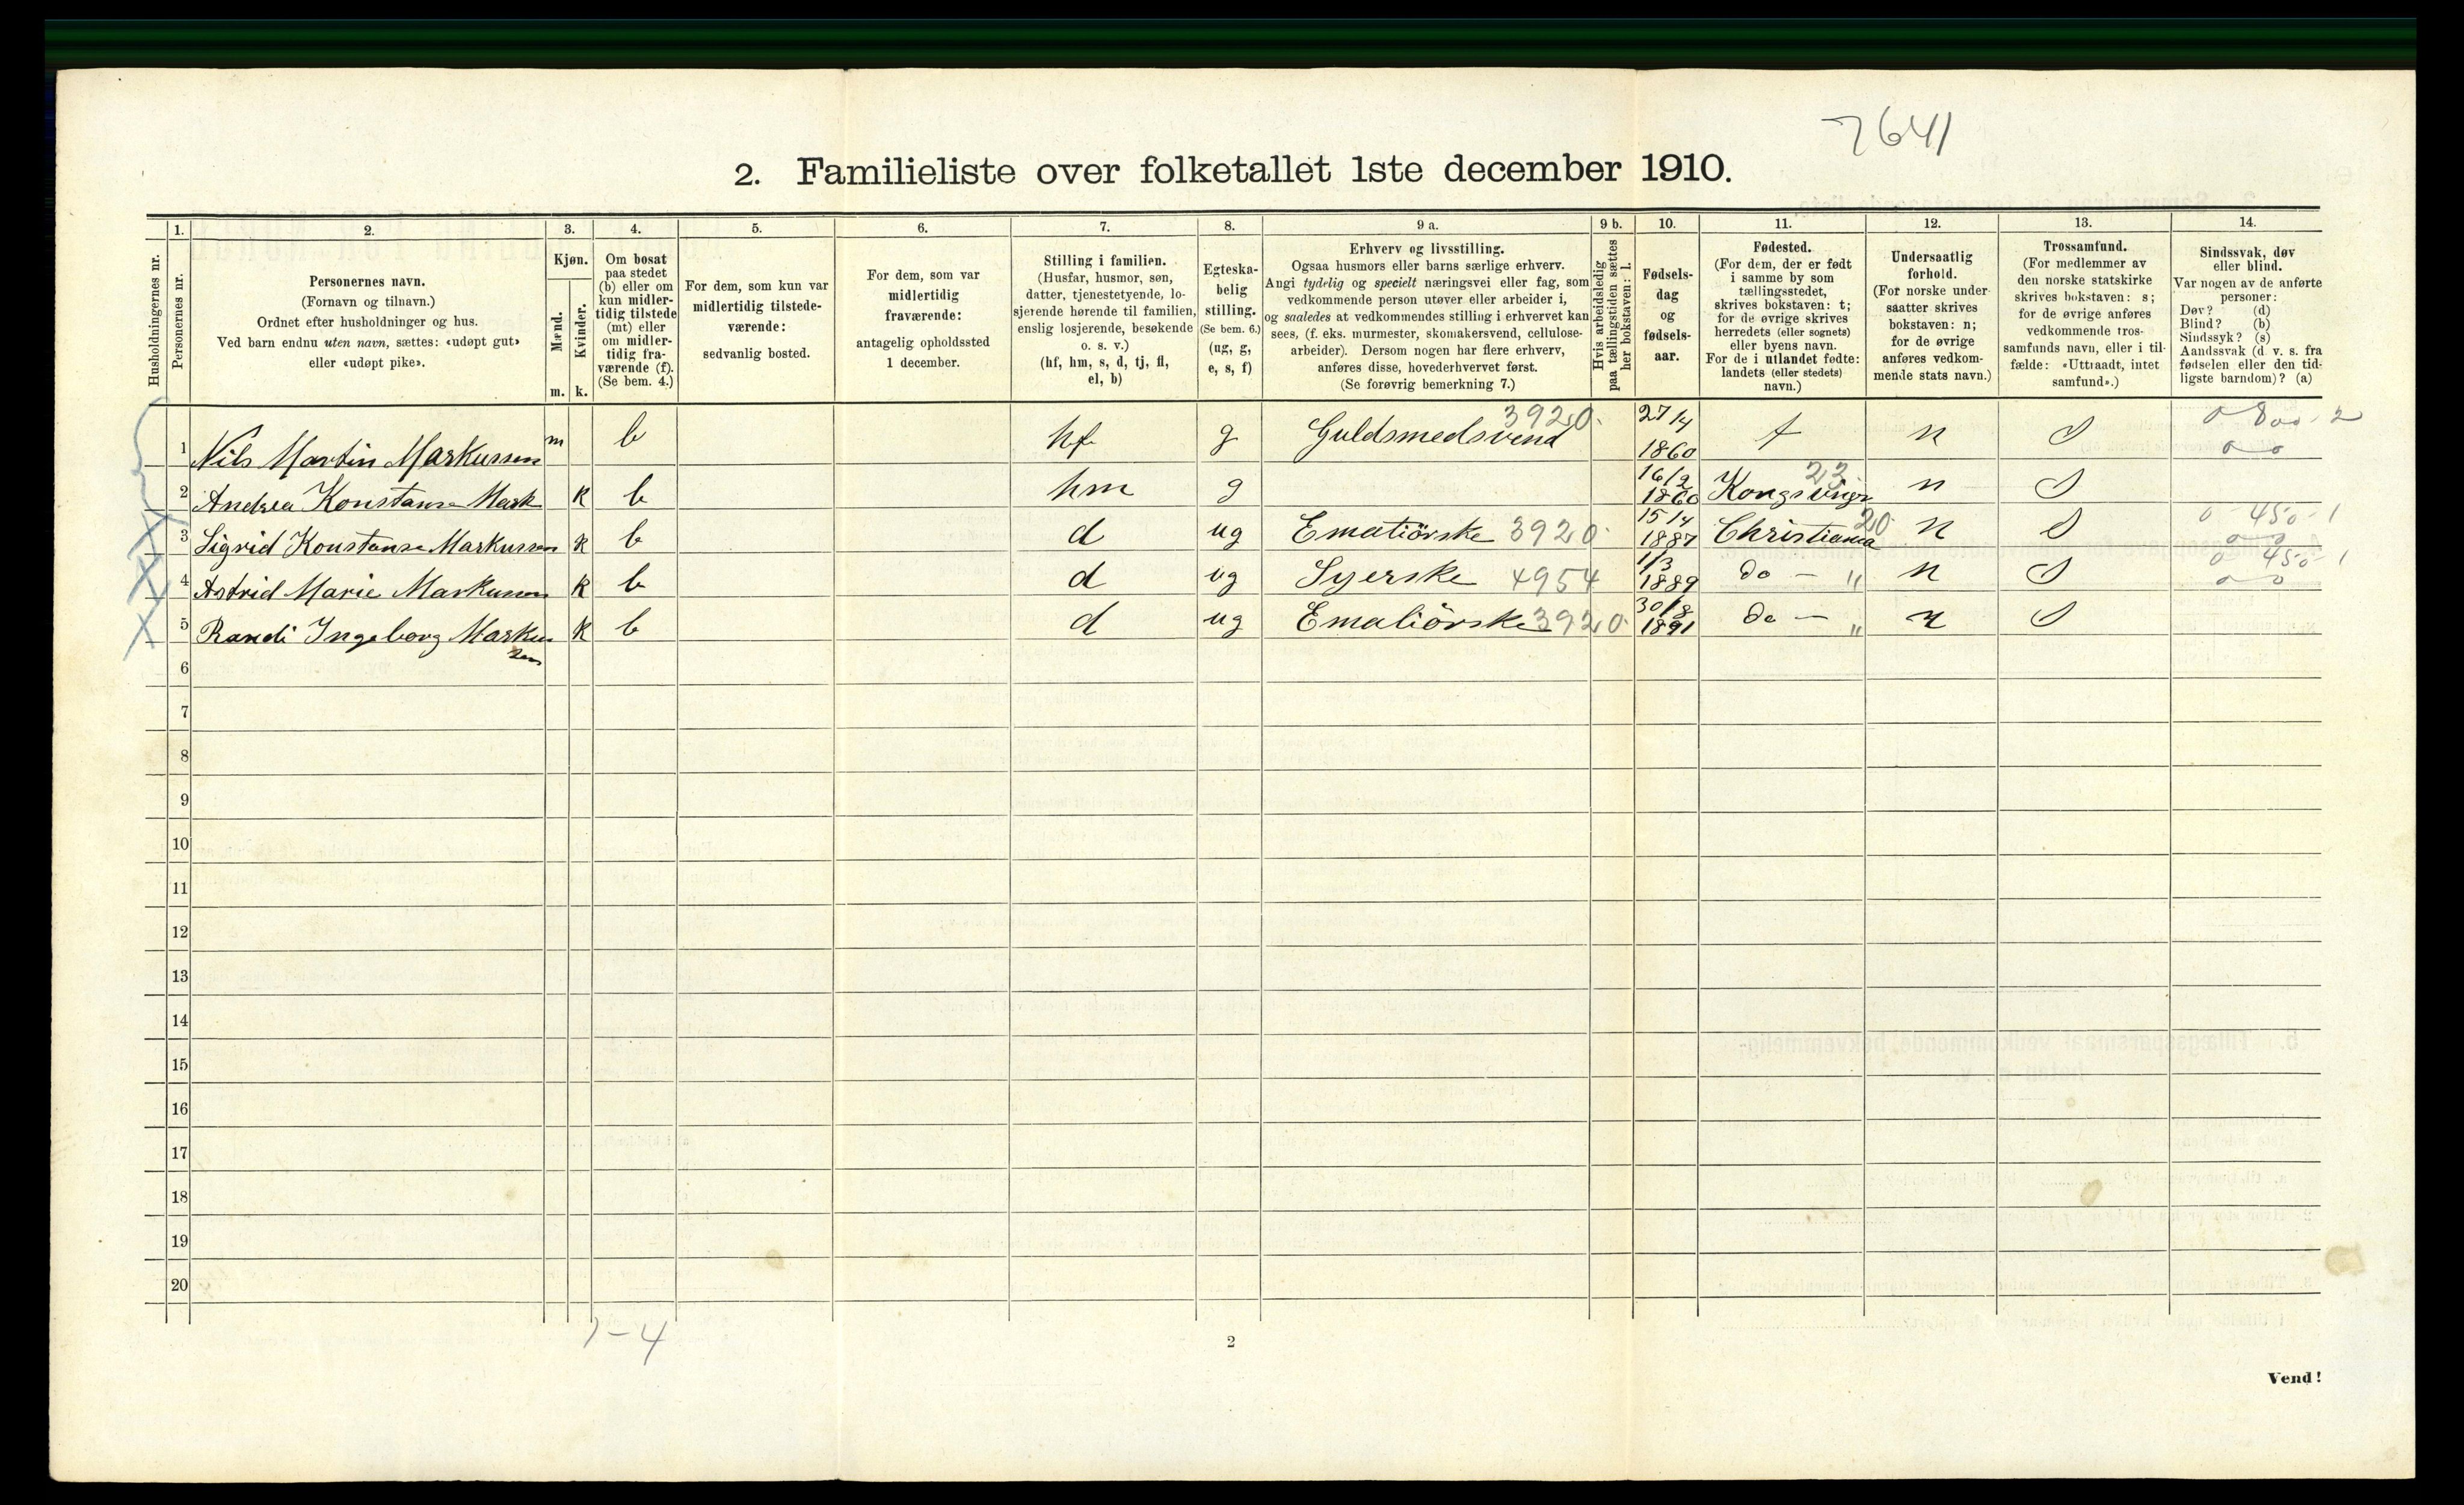 7641
2. Familieliste over folketallet 1ste december 1910.
Husholdningernes nr.
1.
Personernes nr.
2.
Personernes navn.
(Fornavn og tilnavn.)
Ordnet efter husholdninger og hus.
Ved barn endnu uten navn, sættes: «udøpt gut»
eller «udøpt pike».
3.
Kjøn.
Mænd.
Kvinder.
m. k.
4.
Om bosat
paa stedet
(b) eller om
kun midler-
tidig tilstede
(mt) eller
om midler-
tidig fra-
værende (f).
(Se bem. 4.)
5.
For dem, som kun var
midlertidig tilstede-
værende:
sedvanlig bosted.
6.
For dem, som var
midlertidig
fraværende:
antagelig opholdssted
1 december.
7.
Stilling i familien.
(Husfar, husmor, søn,
datter, tjenestetyende, lo-
sjerende hørende til familien,
enslig losjerende, besøkende
o. s. v.)
(hf, hm, s, d, tj, fl,
el, b)
8.
Egteska-
belig
stilling.
(Se bem. 6.)
(ug, g,
e, s, f)
9 a.
Erhverv og livsstilling.
Ogsaa husmors eller barns særlige erhverv.
Angi tydelig og specielt næringsvei eller fag, som
vedkommende person utøver eller arbeider i,
og saaledes at vedkommendes stilling i erhvervet kan
sees, (f. eks. murmester, skomakersvend, cellulose-
arbeider). Dersom nogen har flere erhverv,
anføres disse, hovederhvervet først.
(Se forøvrig bemerkning 7.)
9 b.
Hvis arbeidsledig
paa tællingstiden sættes
her bokstaven: l.
10.
Fødsels-
dag
og
fødsels-
aar.
11.
Fødested.
(For dem, der er født
i samme by som
tællingsstedet,
skrives bokstaven: t;
for de øvrige skrives
herredets (eller sognets)
eller byens navn.
For de i utlandet fødte:
landets (eller stedets)
navn.)
12.
Undersaatlig
forhold.
(For norske under-
saatter skrives
bokstaven: n;
for de øvrige
anføres vedkom-
mende stats navn.)
13.
Trossamfund.
(For medlemmer av
den norske statskirke
skrives bokstaven: s;
for de øvrige anføres
vedkommende tros-
samfunds navn, eller i til-
fælde: «Uttraadt, intet
samfund».)
14.
Sindssvak, døv
eller blind.
Var nogen av de anførte
personer:
Døv? (d)
Blind? (b)
Sindssyk? (s)
Aandssvak (d. v. s. fra
fødselen eller den tid-
ligste barndom)? (a)
1 Nils Martin Markussen m b hf g Guldsmedsvend 3920. 27/4 1860 t n s 0 800 - 2
0 0
2 Andrea Konstanse Mark k b hm g 16/2 1860 Kongsvinger 23 n s
3 Sigrid Konstanse Markussen k b d ug Ematiörske 3920. 15/4 1887 Christiania 20 n s 0 450 - 1
0 0
4 Astrid Marie Markussen k b d ug Syerske 4954 1/3 1889 do — " n s 0 450 - 1
0 0
5 Randi Ingeborg Markus
sen k b d ug Emaliörske 3920. 30/8 1891 do — " n s
6
7
8
9
10
11
12
13
14
15
16
17
18
19
20
1-4
2
Vend!